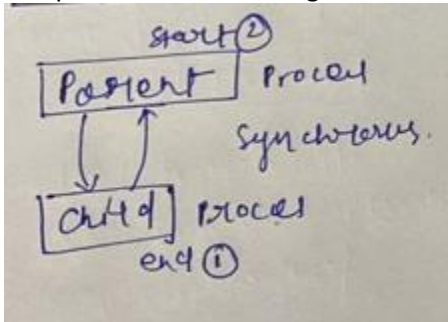 start ②
Parent Process
Synchronus.
Child Process
end ①